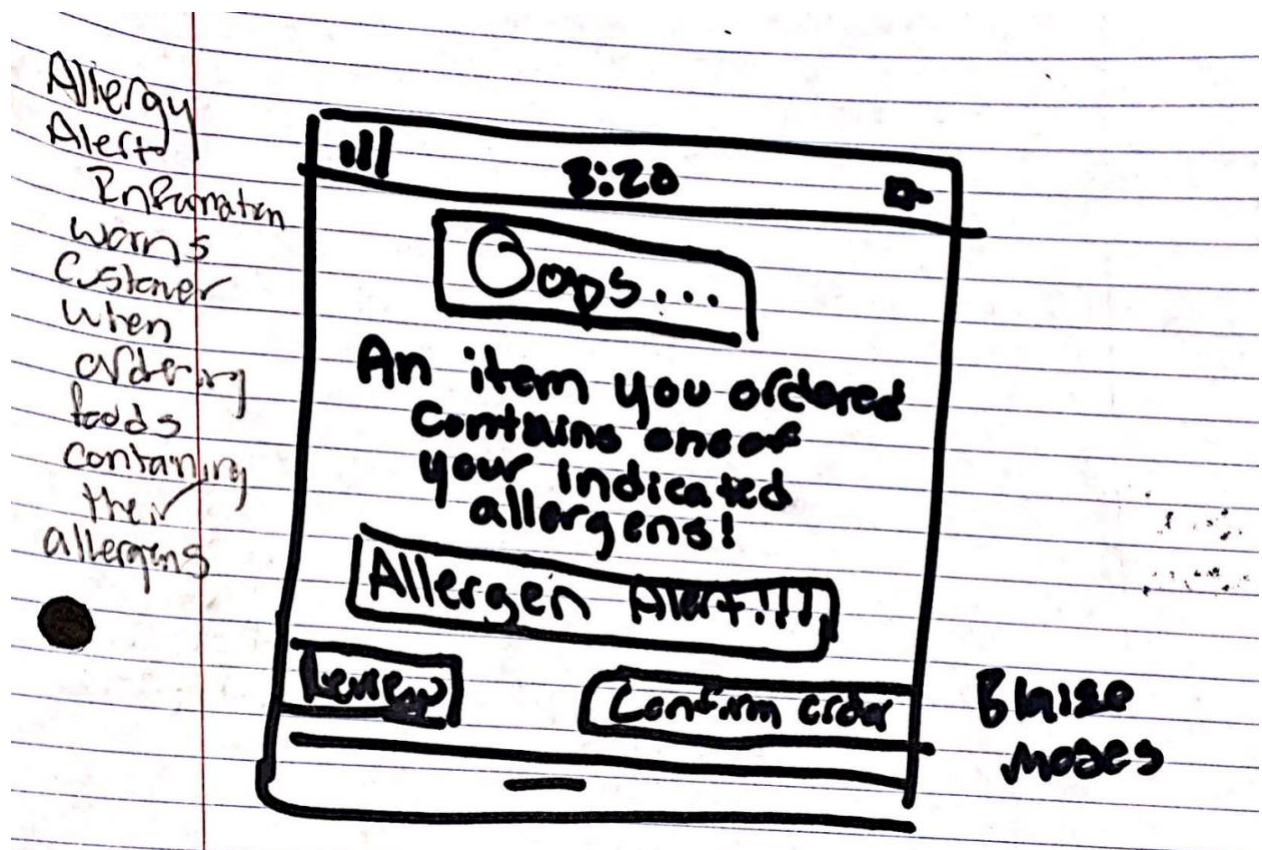 Allergy
Alert
Information
warns
Customer
when
ordering
foods
containing
their
allergens
3:20
Oops...
An item you ordered
Contains one of
your indicated
allergens!
Allergen Alert!!!
Review
Confirm order
Blaize
Moses